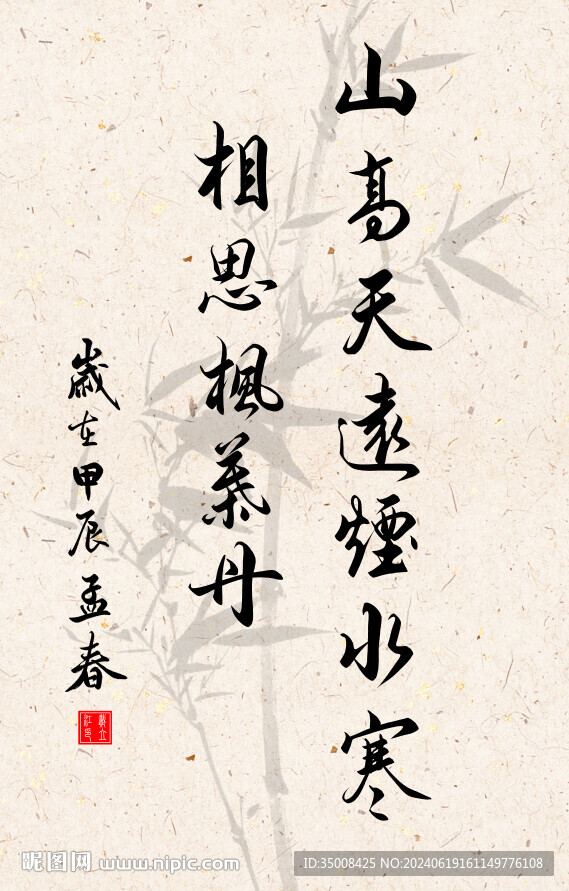 山高天遠煙水寒
相思楓葉丹
歲在甲辰孟春
昵图网 www.nipic.com
ID:35008425 NO:20240619161149776108